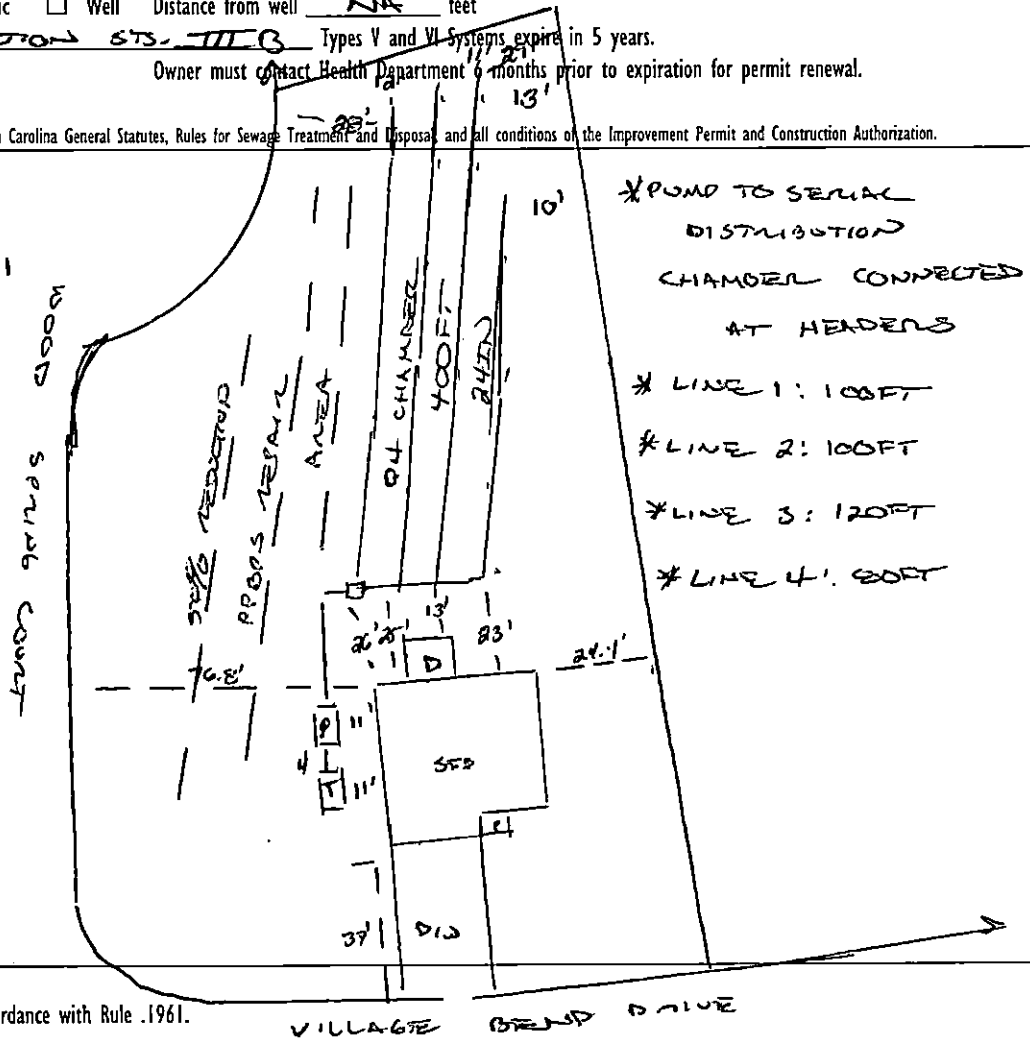 Well Distance from well NA feet
STS. III B Types V and VI Systems expire in 5 years.
Owner must contact Health Department 6 months prior to expiration for permit renewal.
Carolina General Statutes, Rules for Sewage Treatment and Disposal, and all conditions of the Improvement Permit and Construction Authorization.
11' 21'
12'
13'
28'
10'
*PUMP TO SERIAL
DISTRIBUTION
CHAMBER CONNECTED
AT HEADERS
* LINE 1: 100FT
*LINE 2: 100FT
*LINE 3: 120FT
* LINE 4: 80FT
WOOD SPRINGS COURT
PPBPS REPAIR
AREA
Q4 CHAMBER
400FT
24IN
26' 25' 13' 23'
D
24.1'
P 11'
4
T 11'
SFD
P
37'
D/W
VILLAGE BEND DRIVE
rdance with Rule .1961.